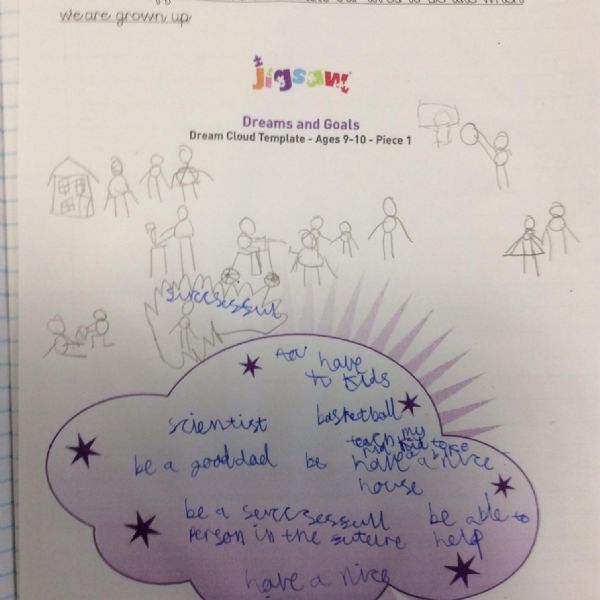 we are grown up
jigsaw
Dreams and Goals
Dream Cloud Template - Ages 9-10 - Piece 1
surcsessful
have
to kids
scientist basketball
teach my
be a good dad be have a nice
house
be a surcsessfull be able to
person in the futeire help
have a nice